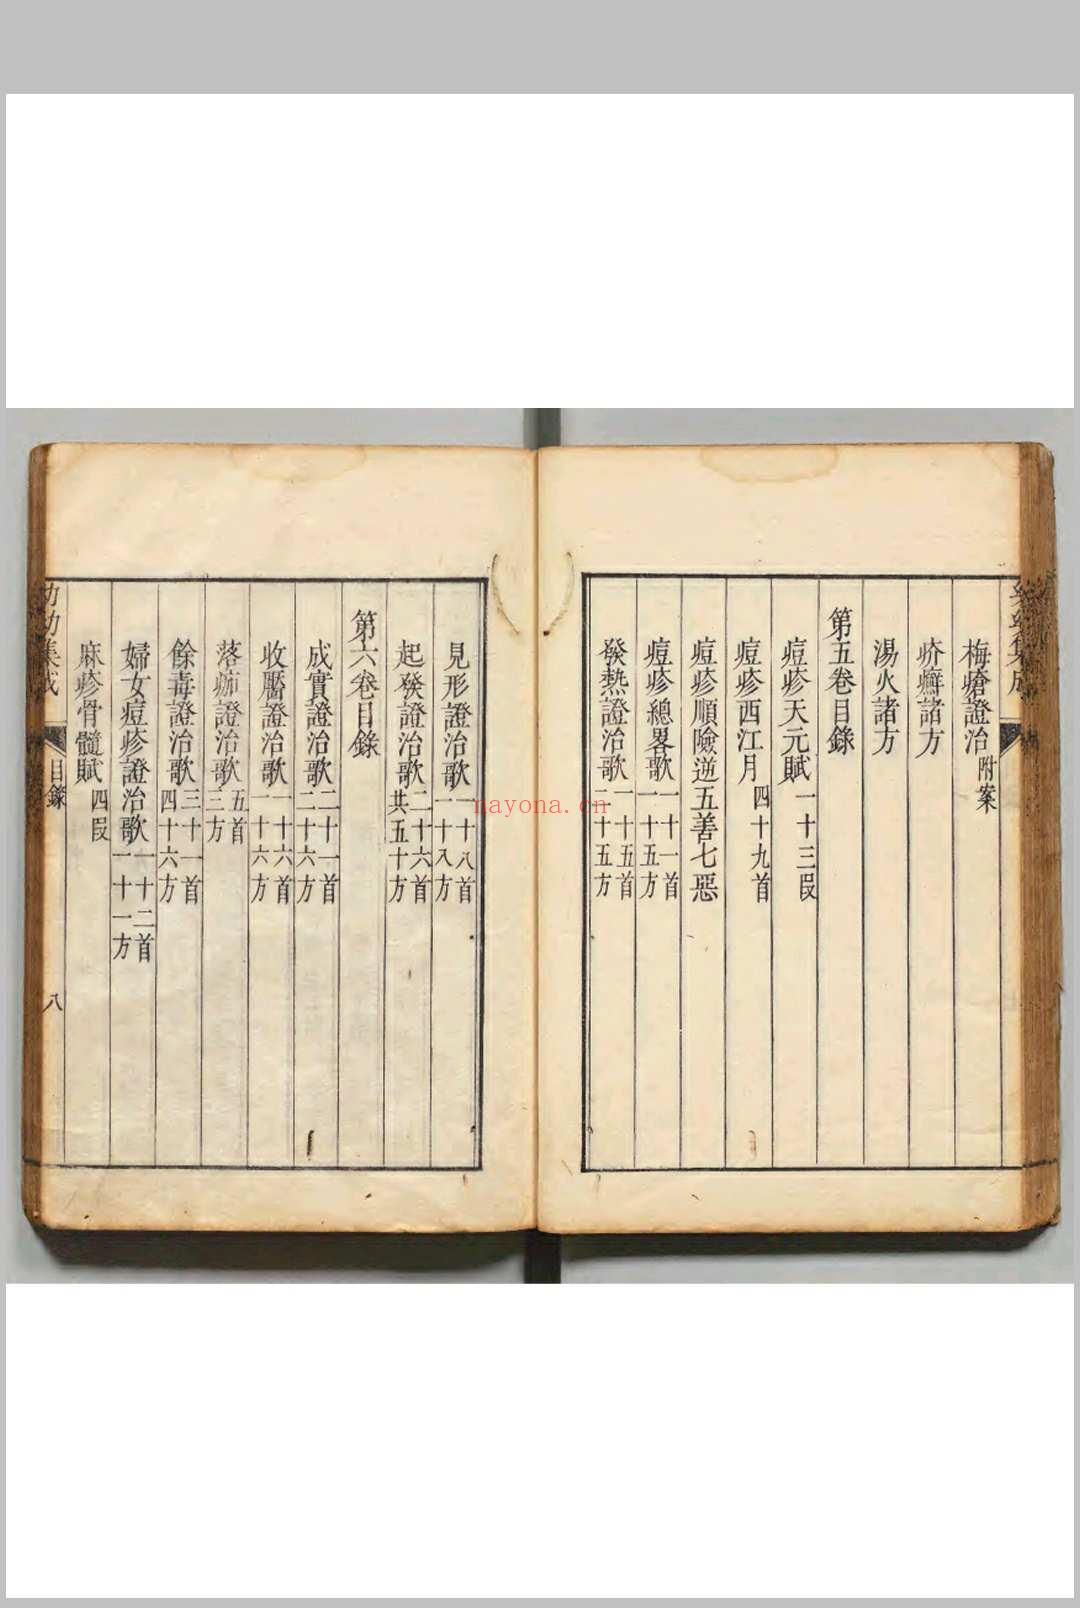 梅瘡證治附案
疥癬諸方
湯火諸方
第五卷目錄
痘疹天元賦一十三段
痘疹西江月四十九首
痘疹順險逆五善七惡
痘疹總畧歌一十一首一十五方
發熱證治歌一十五首二十五方
見形證治歌一十八首一十八方
起發證治歌二十六首共五十方
第六卷目錄
成實證治歌二十一首二十六方
收靨證治歌一十六首一十六方
落痂證治歌五首三方
餘毒證治歌三十一首四十六方
婦女痘疹證治歌一十二首一十一方
麻疹骨髓賦四段
幼幼集成
目錄
八
nayona.cn